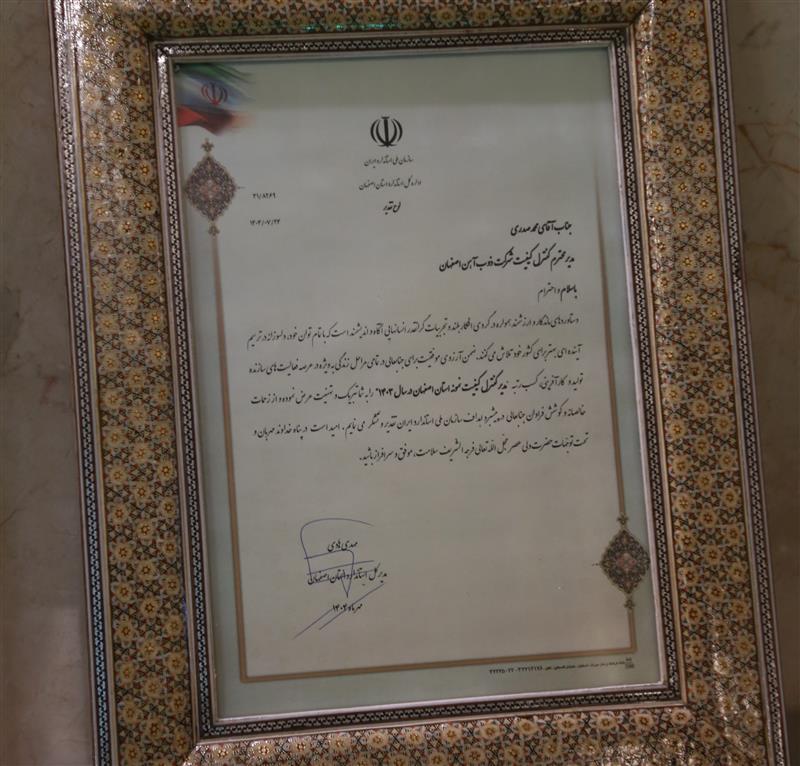 سازمان ملی استاندارد ایران
اداره کل استاندارد استان اصفهان
۳۱/۸۲۶۹
لوح تقدیر
۱۴۰۴/۰۷/۲۴
جناب آقای محمد صدری
مدیر محترم کنترل کیفیت شرکت ذوب آهن اصفهان
باسلام و احترام
دستاوردهای ماندگار و ارزشمند همواره در گروی افکار بلند و تجربیات گرانقدر انسانهایی آگاه و اندیشمند است که با تمام توان خود، دلسوزانه در ترسیم
آینده ای بهتر برای کشور خود تلاش می کنند. ضمن آرزوی موفقیت برای جنابعالی در تمامی مراحل زندگی به ویژه در عرصه فعالیت های سازنده
تولید و کارآفرینی، کسب رتبه "مدیر کنترل کیفیت نمونه استان اصفهان در سال ۱۴۰۳" را به شما تبریک و تهنیت عرض نموده و از زحمات
خالصانه و کوشش فراوان جنابعالی در پیشبرد اهداف سازمان ملی استاندارد ایران تقدیر و تشکر می نمایم . امید است در پناه خداوند مهربان و
تحت توجهات حضرت ولی عصر عجل الله تعالی فرجه الشریف سلامت، موفق و سرافراز باشید.
مهدی هادی
مدیر کل استاندارد استان اصفهان
مهرماه ۱۴۰۴